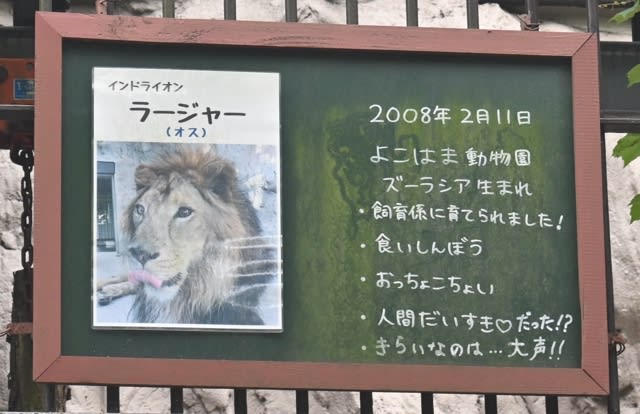 インドライオン
ラージャー
(オス)
2008年2月11日
よこはま動物園
ズーラシア生まれ
・飼育係に育てられました!
・食いしんぼう
・おっちょこちょい
・人間だいすき♡だった!?
・きらいなのは…大声!!